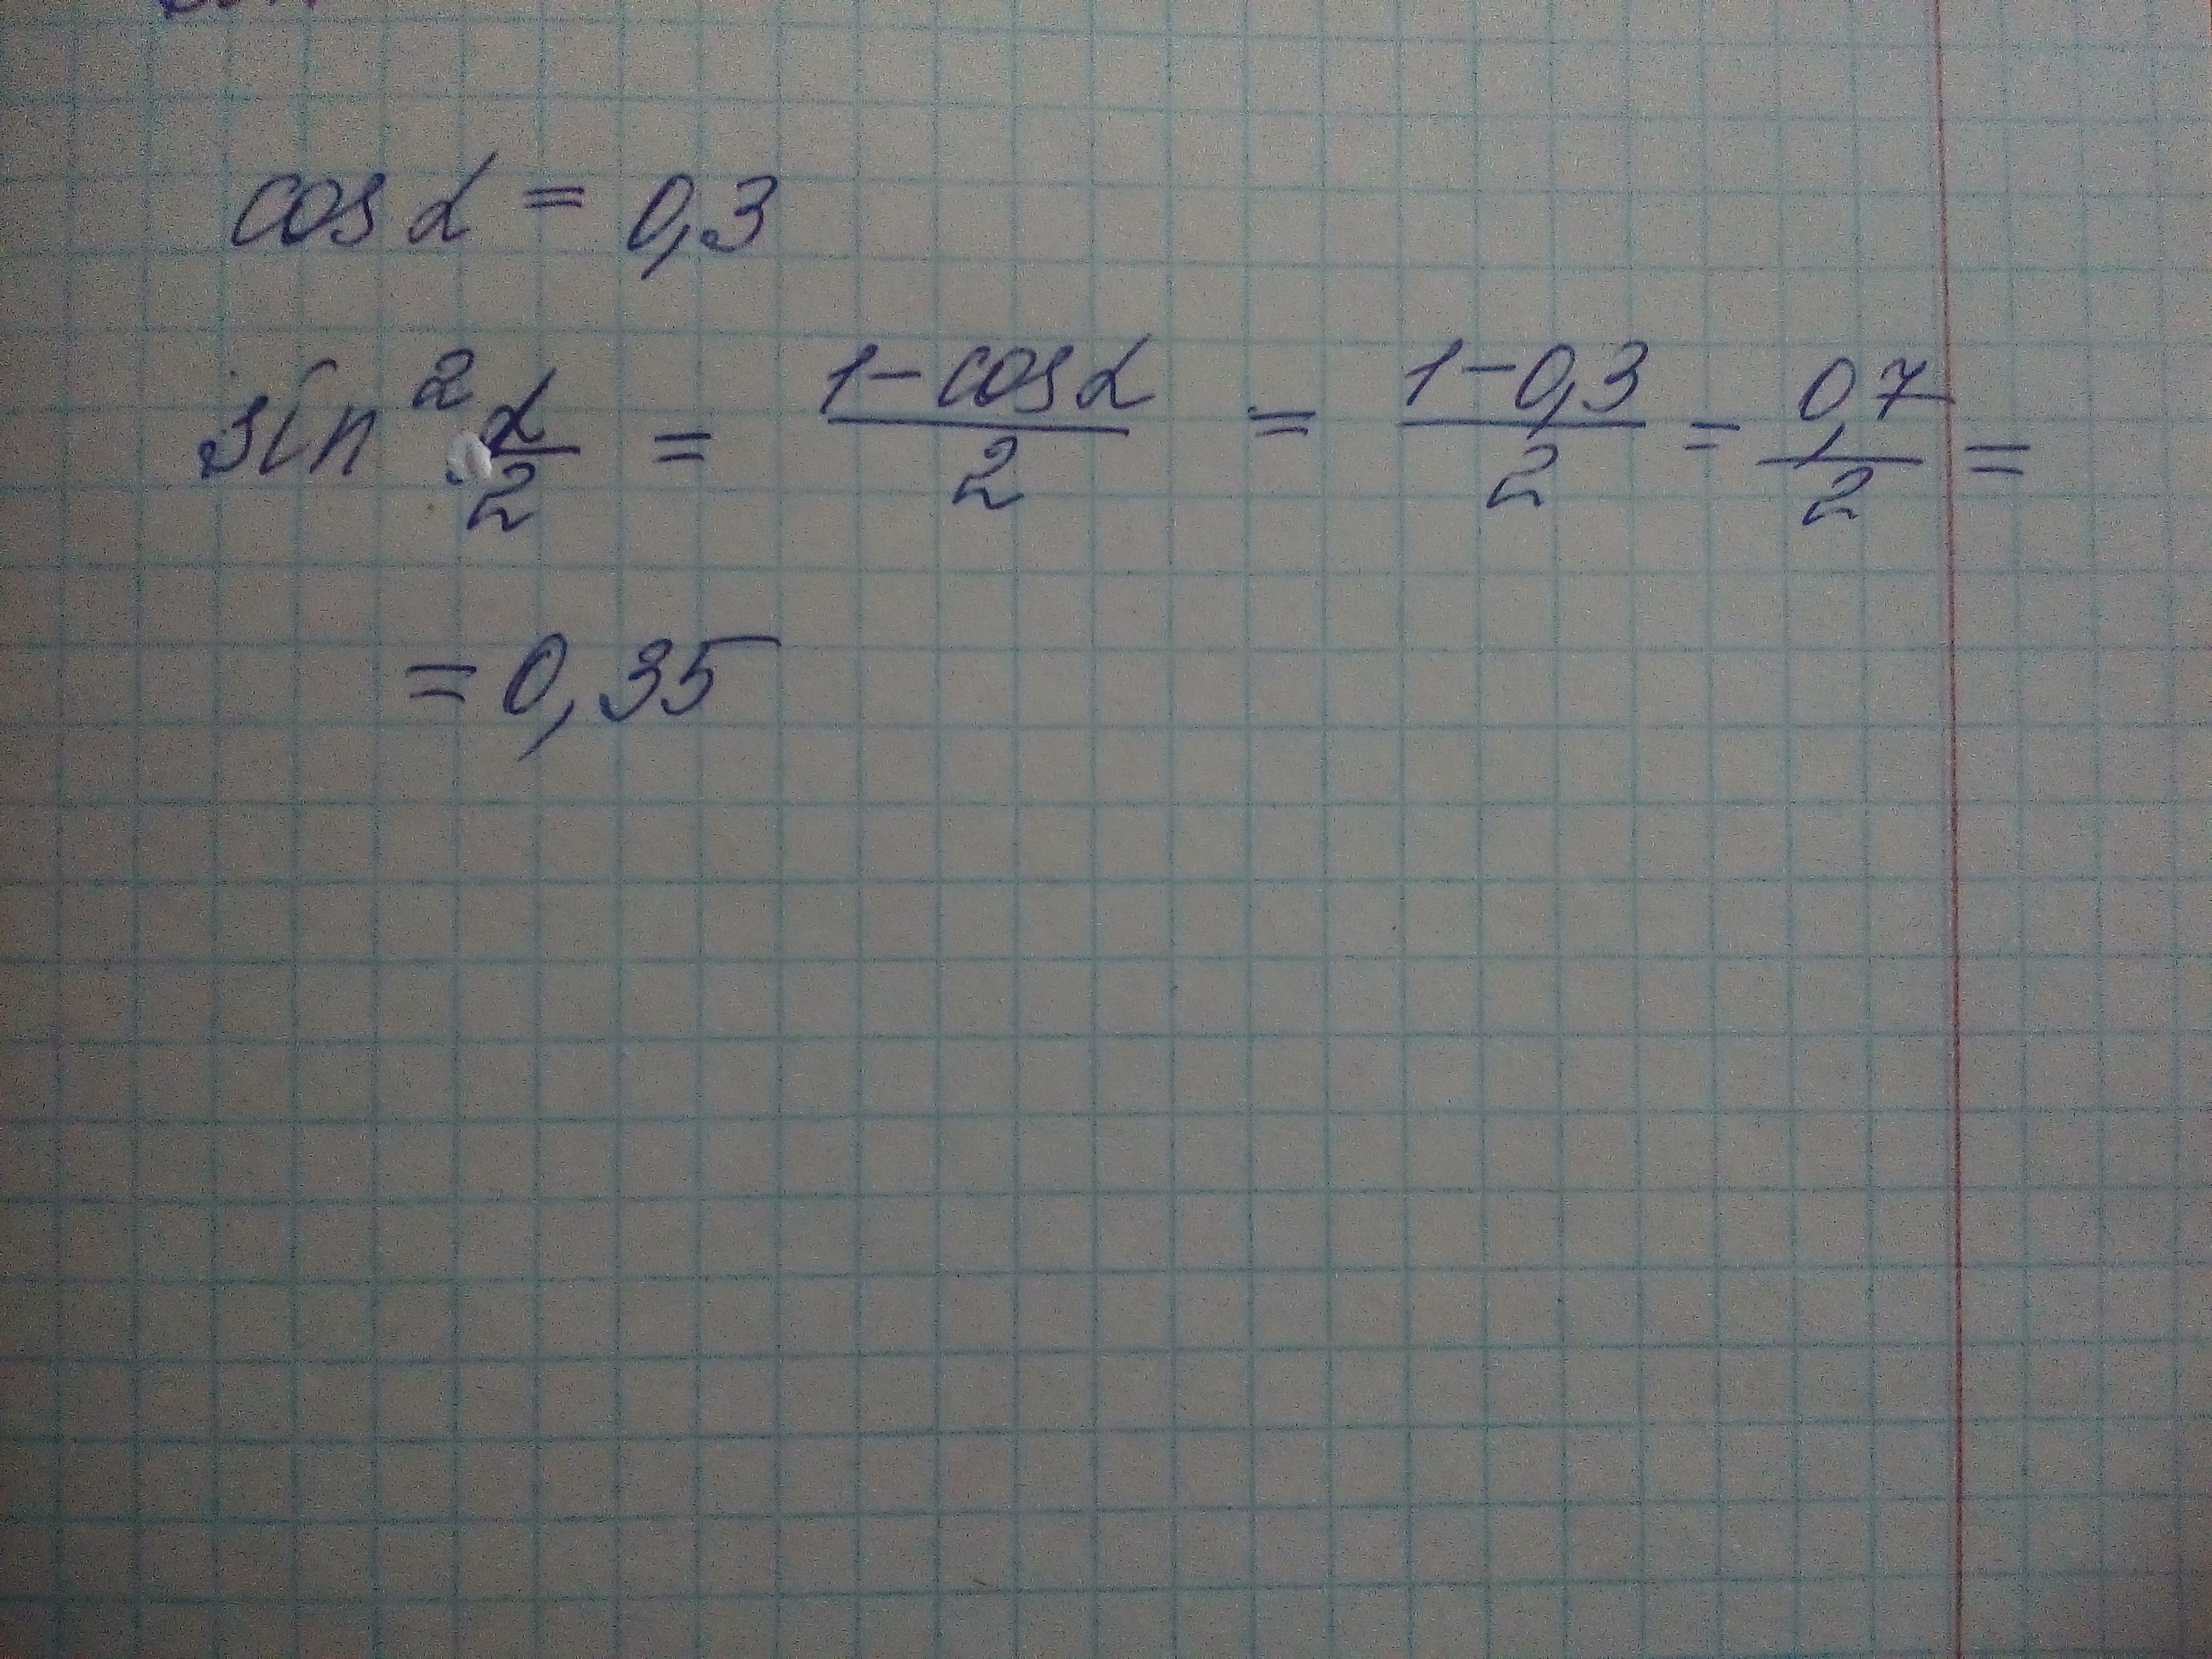 cos α = 0,3
sin² α/2 = (1 - cos α)/2 = (1 - 0,3)/2 = 0,7/2 =
= 0,35